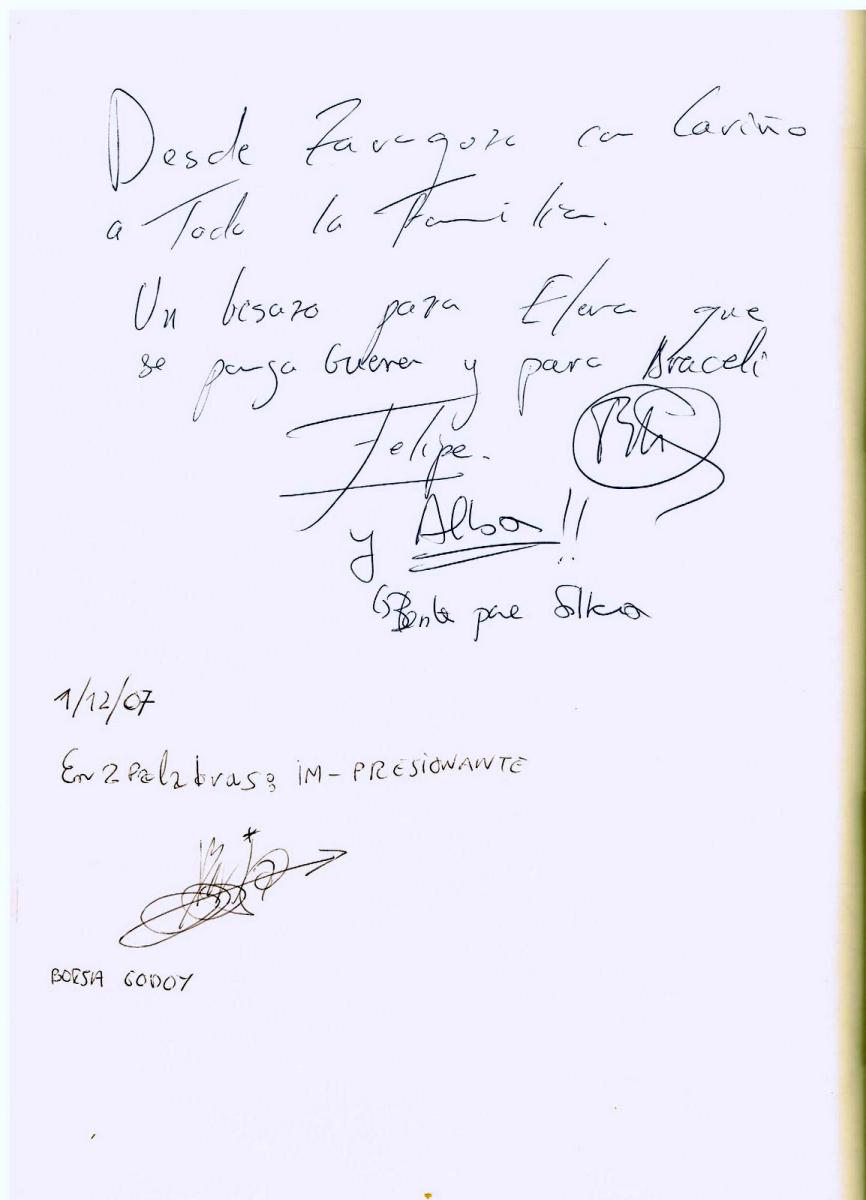 Desde Zaragoza con Cariño
a Toda la Familia.
Un besazo para Elena que
se ponga Guena y para Araceli
Felipe.
y Alba!!
1/12/07
En 2 Palabras: IM-PRESIONANTE
BORJA GODOY